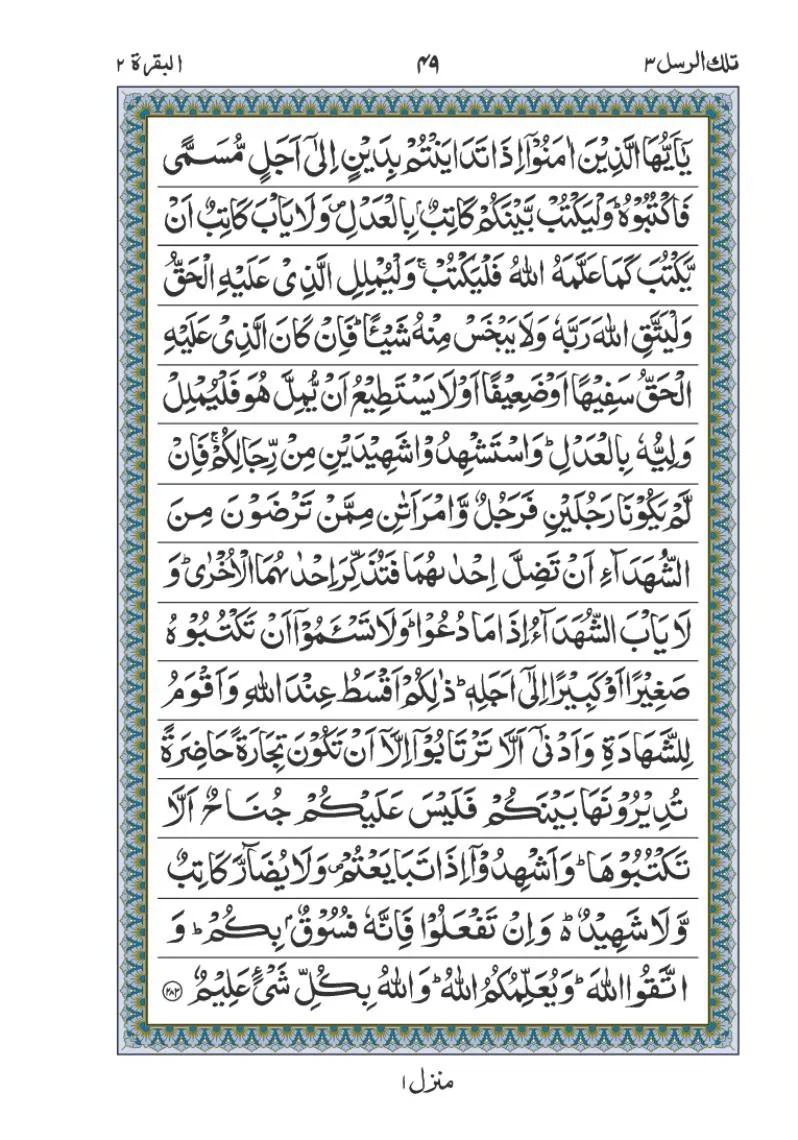 تلك الرسل ۳
۴۹
البقرة ۲
يٰۤاَيُّهَا الَّذِيْنَ اٰمَنُوْۤا اِذَا تَدَايَنْتُمْ بِدَيْنٍ اِلٰۤى اَجَلٍ مُّسَمًّى
فَاكْتُبُوْهُ ؕ وَلْيَكْتُبْ بَّيْنَكُمْ كَاتِبٌۢ بِالْعَدْلِ ۪ وَلَا يَاْبَ كَاتِبٌ اَنْ
يَّكْتُبَ كَمَا عَلَّمَهُ اللّٰهُ فَلْيَكْتُبْ ۚ وَلْيُمْلِلِ الَّذِيْ عَلَيْهِ الْحَقُّ
وَلْيَتَّقِ اللّٰهَ رَبَّهٗ وَلَا يَبْخَسْ مِنْهُ شَيْـًٔا ؕ فَاِنْ كَانَ الَّذِيْ عَلَيْهِ
الْحَقُّ سَفِيْهًا اَوْ ضَعِيْفًا اَوْ لَا يَسْتَطِيْعُ اَنْ يُّمِلَّ هُوَ فَلْيُمْلِلْ
وَلِيُّهٗ بِالْعَدْلِ ؕ وَاسْتَشْهِدُوْا شَهِيْدَيْنِ مِنْ رِّجَالِكُمْ ۚ فَاِنْ
لَّمْ يَكُوْنَا رَجُلَيْنِ فَرَجُلٌ وَّامْرَاَتٰنِ مِمَّنْ تَرْضَوْنَ مِنَ
الشُّهَدَآءِ اَنْ تَضِلَّ اِحْدٰىهُمَا فَتُذَكِّرَ اِحْدٰىهُمَا الْاُخْرٰى ؕ وَ
لَا يَاْبَ الشُّهَدَآءُ اِذَا مَا دُعُوْا ؕ وَلَا تَسْـَٔمُوْۤا اَنْ تَكْتُبُوْهُ
صَغِيْرًا اَوْ كَبِيْرًا اِلٰۤى اَجَلِهٖ ؕ ذٰلِكُمْ اَقْسَطُ عِنْدَ اللّٰهِ وَاَقْوَمُ
لِلشَّهَادَةِ وَاَدْنٰۤى اَلَّا تَرْتَابُوْۤا اِلَّاۤ اَنْ تَكُوْنَ تِجَارَةً حَاضِرَةً
تُدِيْرُوْنَهَا بَيْنَكُمْ فَلَيْسَ عَلَيْكُمْ جُنَاحٌ اَلَّا
تَكْتُبُوْهَا ؕ وَاَشْهِدُوْۤا اِذَا تَبَايَعْتُمْ ۪ وَلَا يُضَآرَّ كَاتِبٌ
وَّلَا شَهِيْدٌ ۬ؕ وَاِنْ تَفْعَلُوْا فَاِنَّهٗ فُسُوْقٌۢ بِكُمْ ؕ وَ
اتَّقُوا اللّٰهَ ؕ وَيُعَلِّمُكُمُ اللّٰهُ ؕ وَاللّٰهُ بِكُلِّ شَيْءٍ عَلِيْمٌ ﴿۲۸۲﴾
منزل ۱